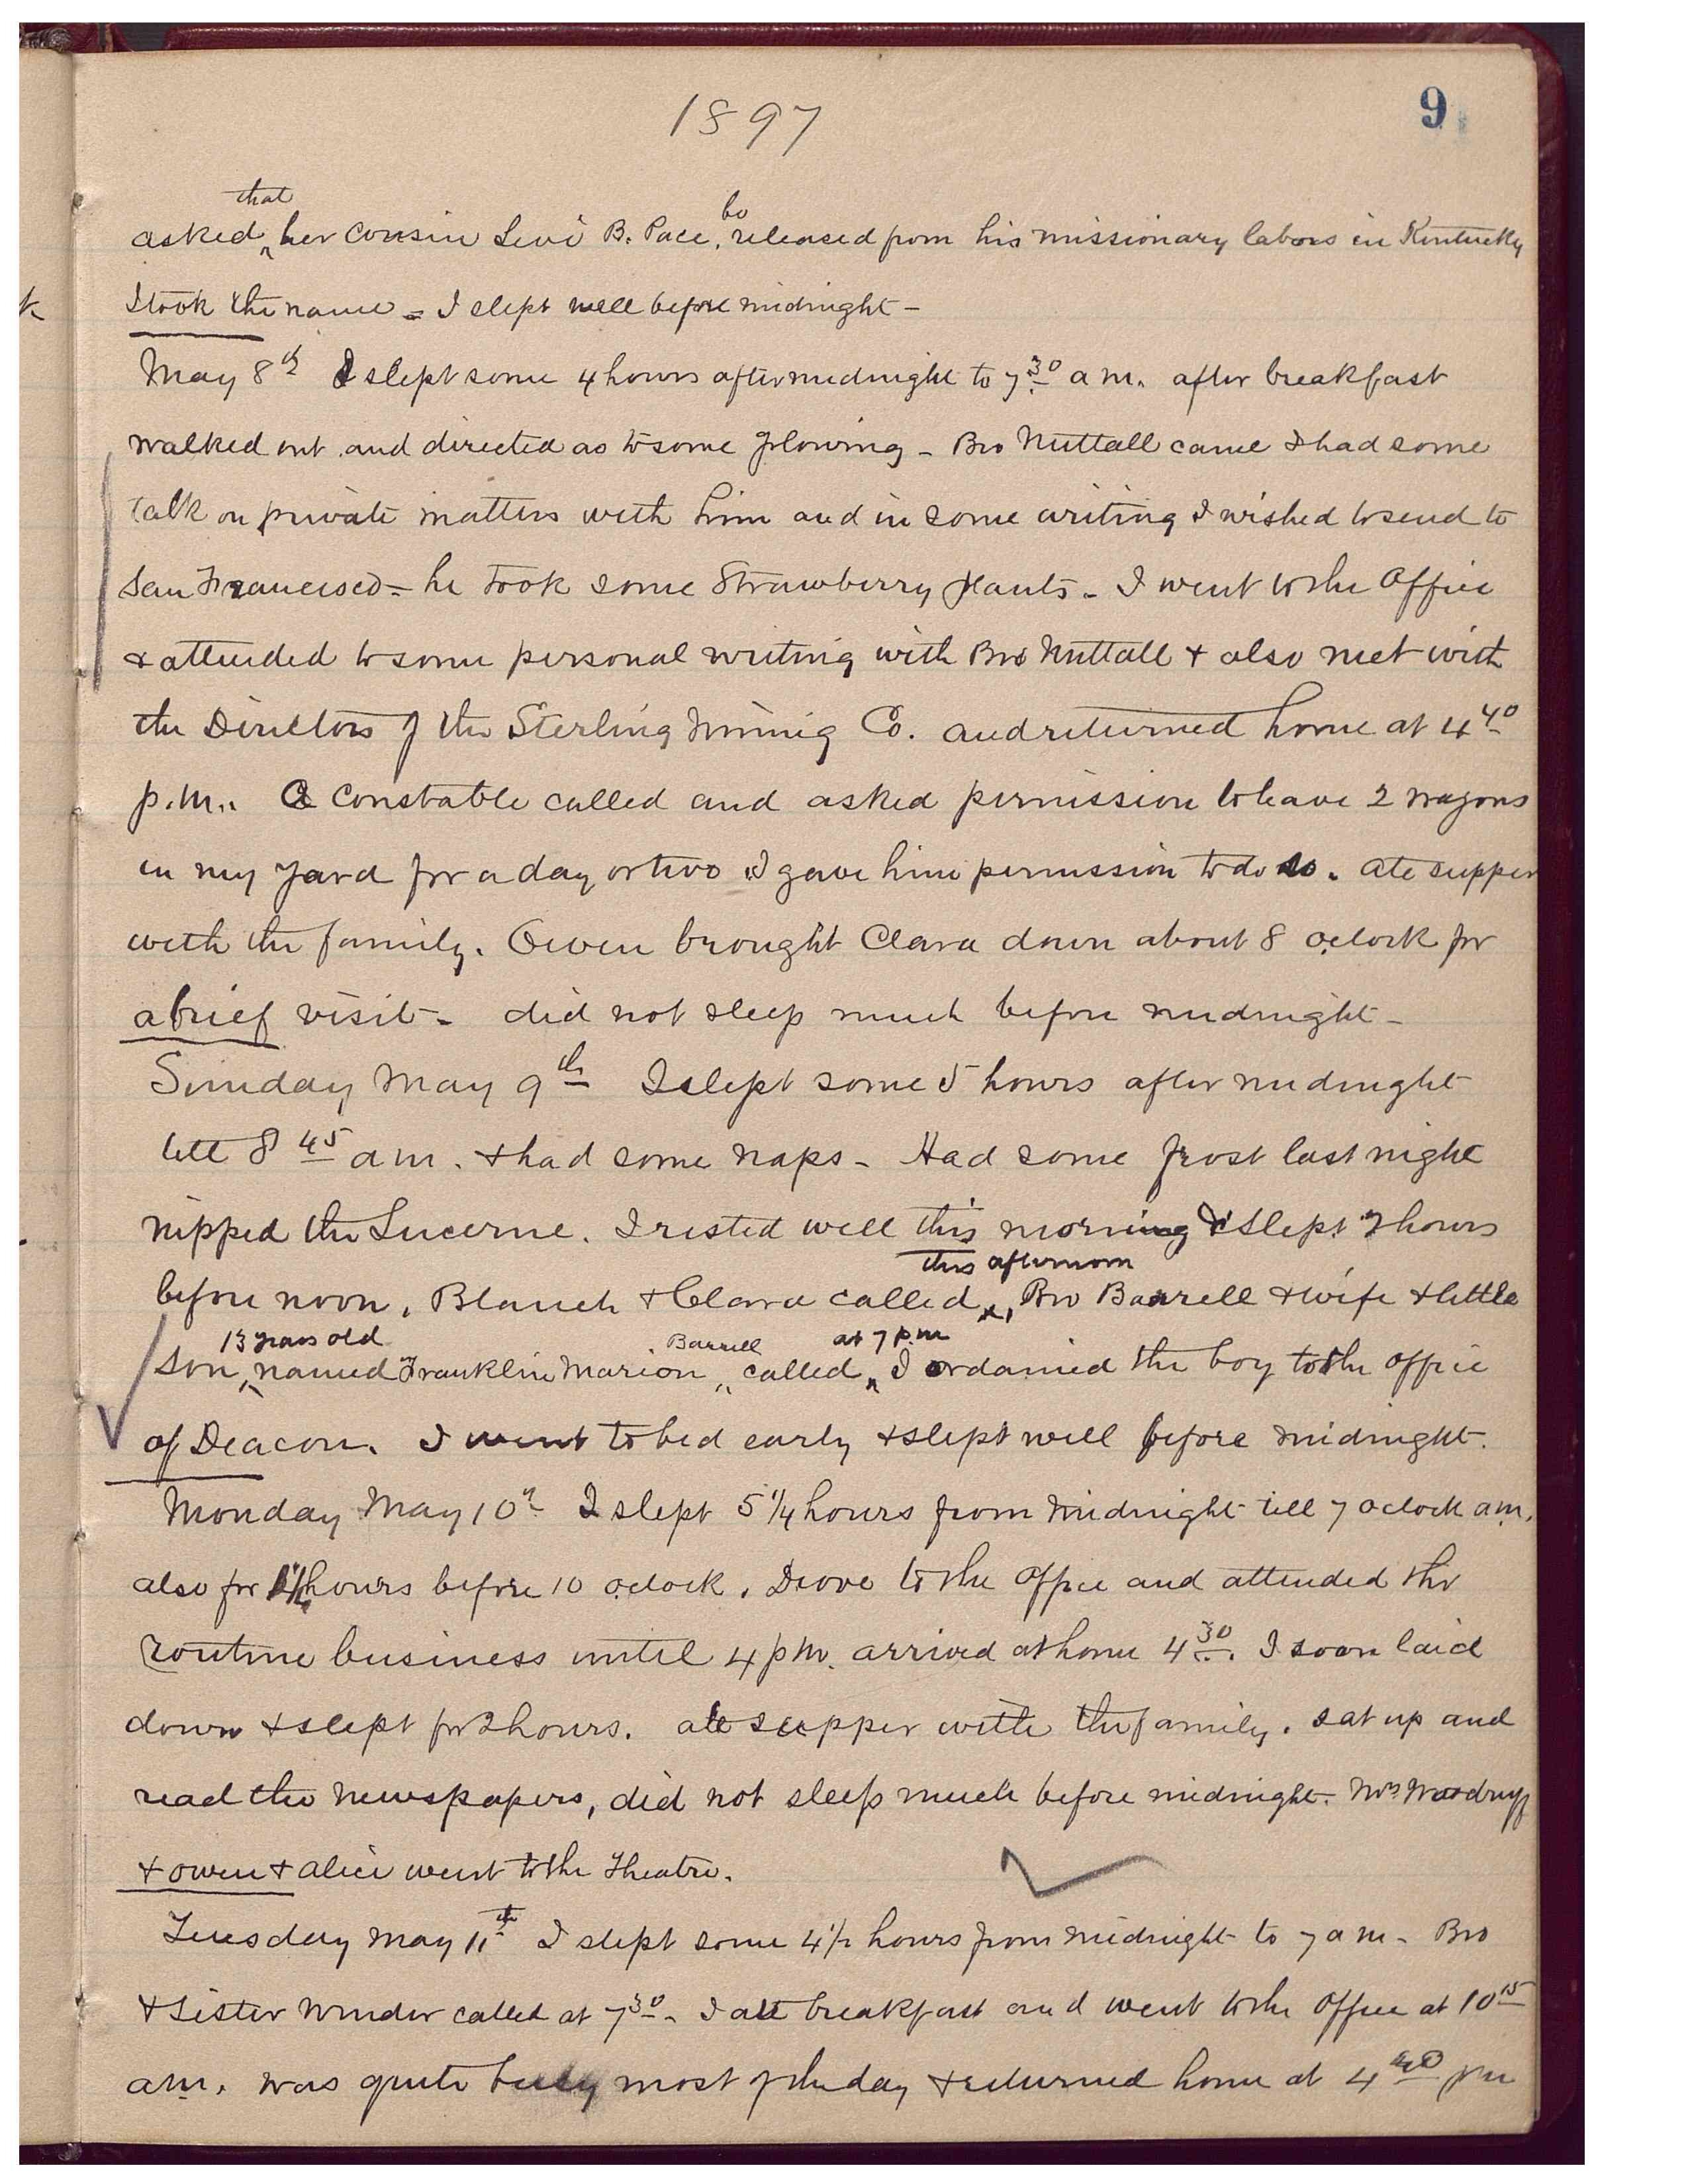 1897
9
that be
asked ‸ her cousin Levi B. Pace, released from his missionary labors in Kentucky
I took the name = I slept well before midnight -
May 8th I slept some 4 hours after midnight to 7 30 a m. after breakfast
walked out and directed as to some plowing - Bro Nuttall came & had some
talk on private matters with him and in some writing I wished to send to
San Francisco = he took some Strawberry plants - I went to the Office
& attended to some personal writing with Bro Nuttall & also met with
the Directors of the Sterling Mining Co. and returned home at 4 40
p.m.. A Constable called and asked permission to leave 2 wagons
in my yard for a day or two I gave him permission to do so. ate supper
with the family. Owen brought Clara down about 8 oclock for
a brief visit - did not sleep much before midnight -
Sunday May 9th I slept some 5 hours after midnight
till 8 45 a m. & had some naps - Had some frost last night
nipped the Lucerne. I rested well this morning & slept 2 hours
this afternoon
before noon, Blanch & Clara called ‸, Bro Barrell & wife & little
13 years old Barrell at 7 p.m
son, ‸ named Franklin Marion, called ‸ I ordained the boy to the office
of Deacon. I went to bed early & slept well before midnight.
Monday May 10th I slept 5 1/4 hours from midnight till 7 oclock a.m.
also for hours before 10 oclock. Drove to the office and attended the
routine business until 4 p m. arrived at home 4 30. I soon laid
down & slept for 2 hours. ate supper with the family. sat up and
read the newspapers, did not sleep much before midnight. Mrs Woodruff
& owen & alice went to the Theatre.
Tuesday May 11th I slept some 4 1/2 hours from midnight to 7 a m - Bro
& Sister Winder called at 7 30 - I ate breakfast and went to the office at 10 15
a m. was quite busy most of the day & returned home at 4 40 pm